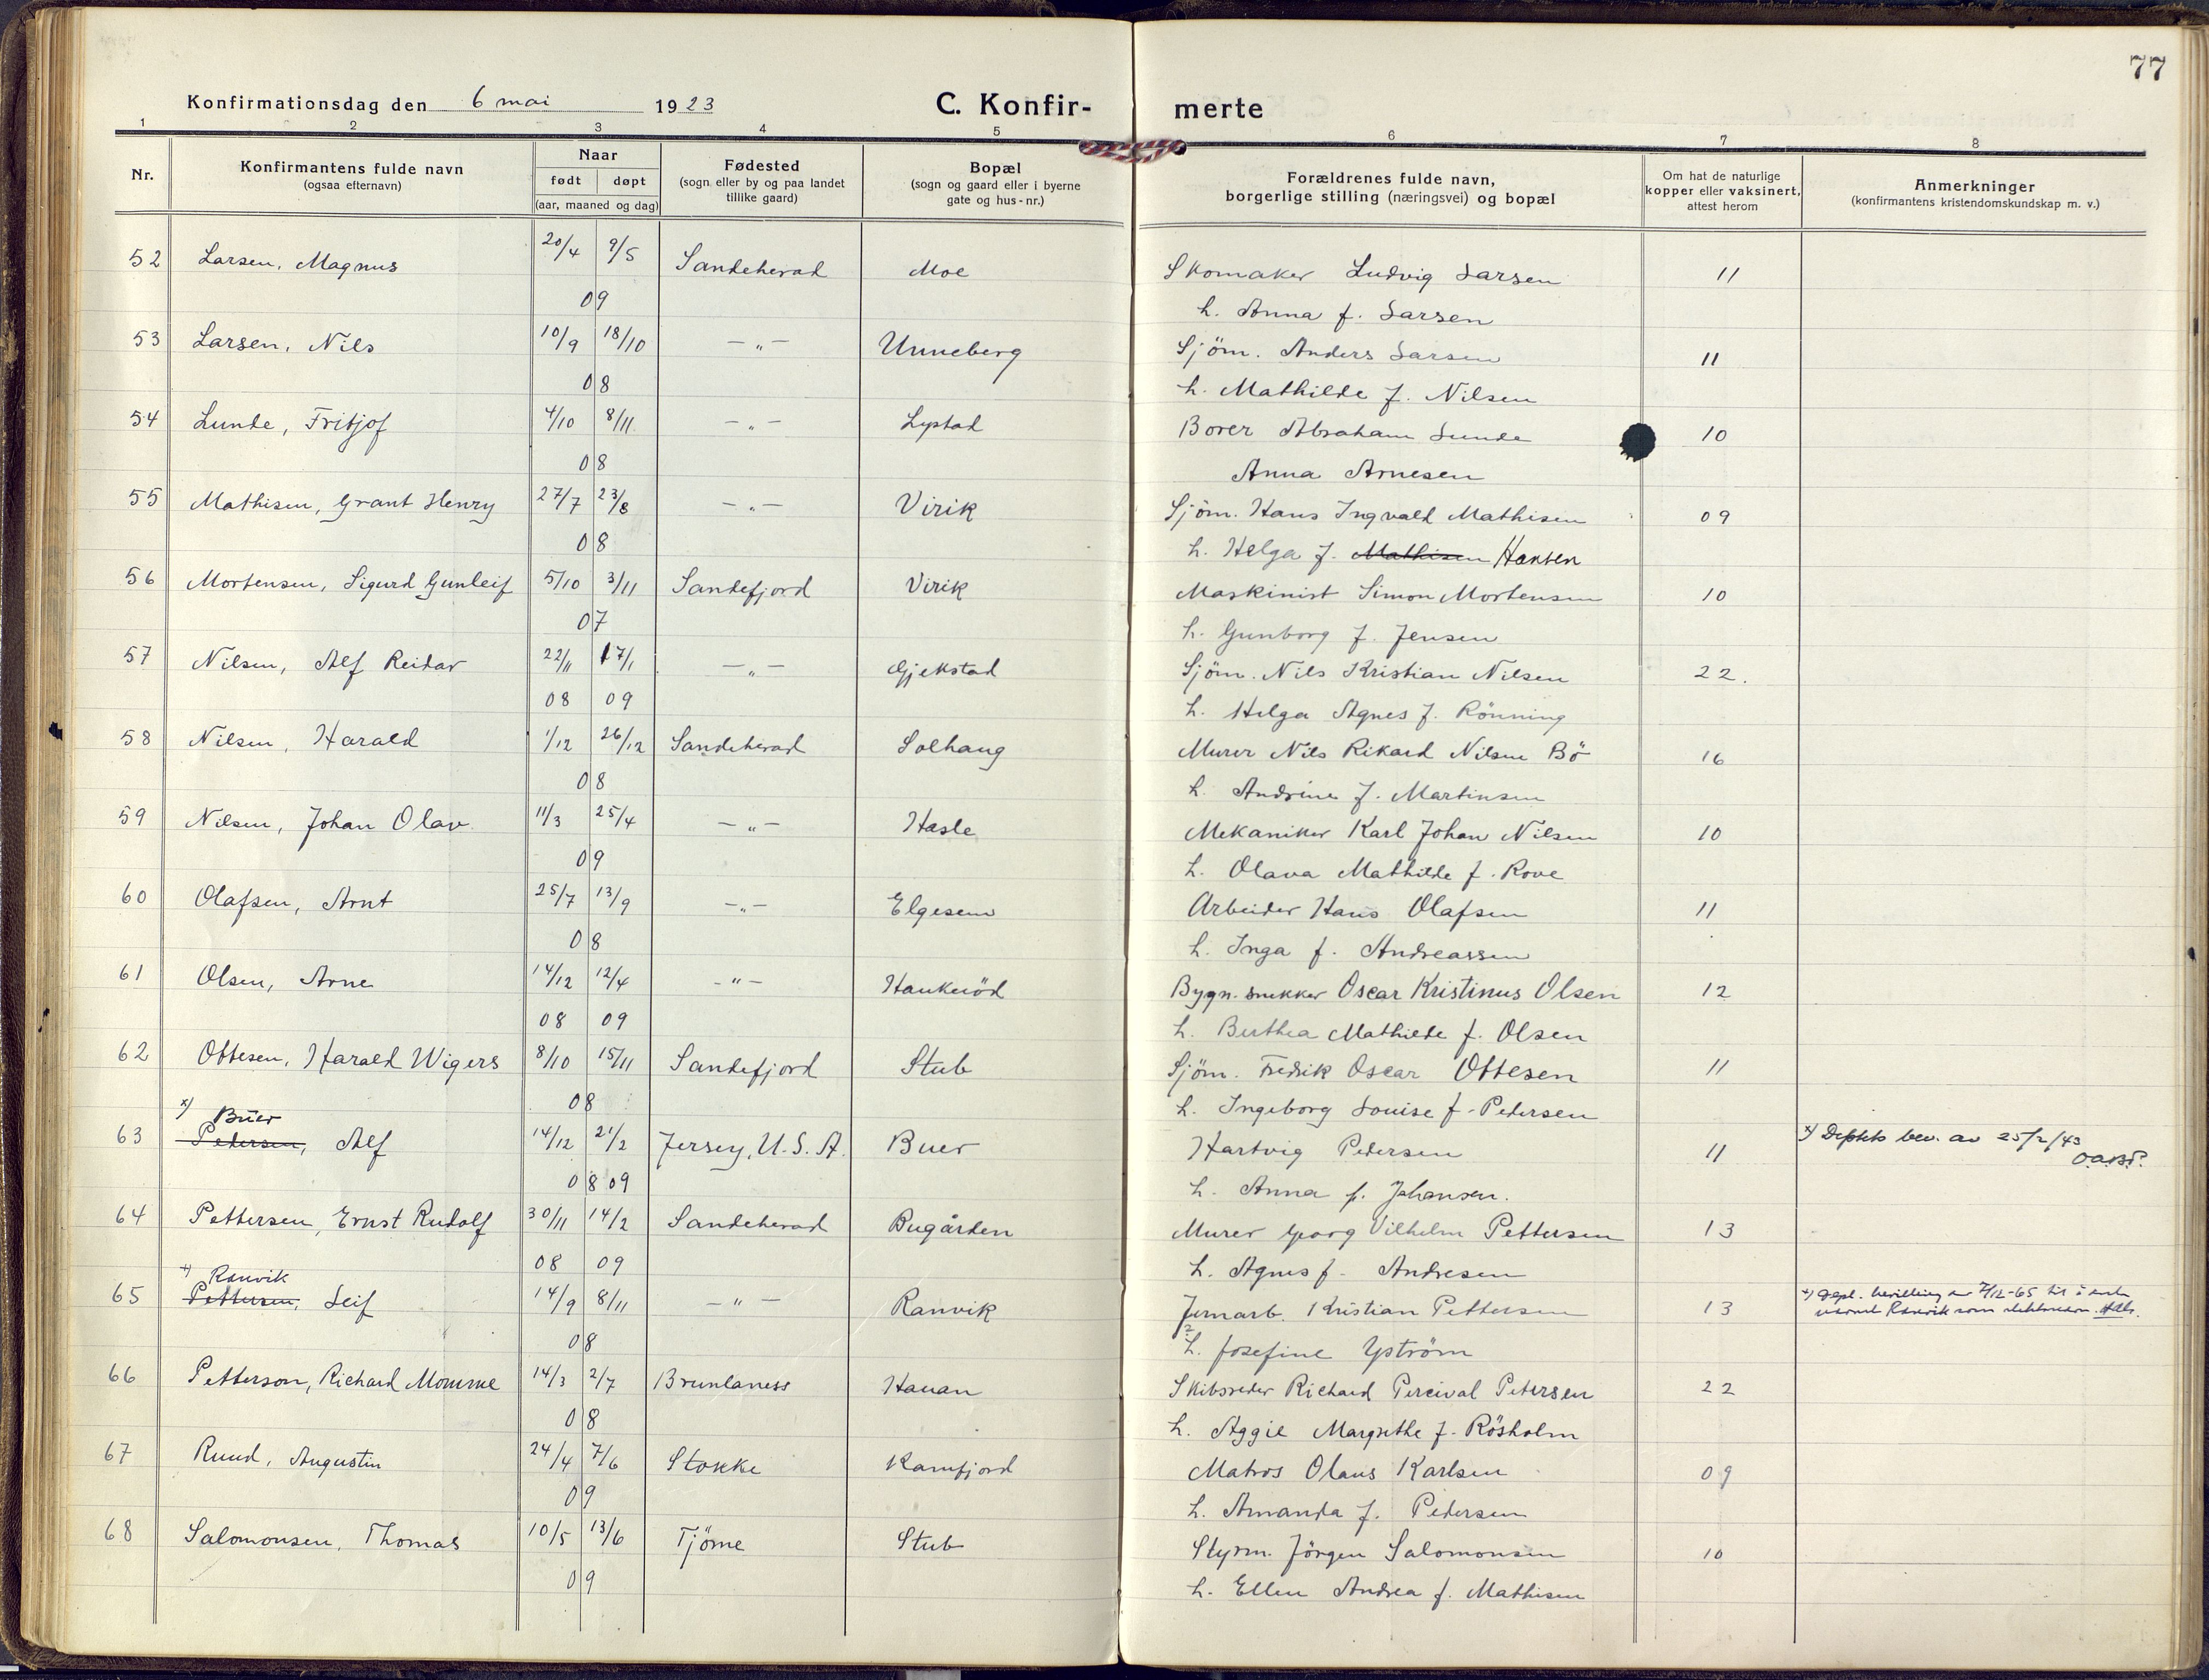 77
Konfirmationsdag den 6 mai 1923
C. Konfir- merte
1 2 3 4 5 6 7 8
Nr.
Konfirmantens fulde navn
(ogsaa efternavn)
Naar
født døpt
(aar, maaned og dag)
Fødested
(sogn eller by og paa landet
tillike gaard)
Bopæl
(sogn og gaard eller i byerne
gate og hus-nr.)
Forældrenes fulde navn,
borgerlige stilling (næringsvei) og bopæl
Om hat de naturlige
kopper eller vaksinert,
attest herom
Anmerkninger
(konfirmantens kristendomskundskap m. v.)
52 Larsen, Magnus 20/4 9/5 Sandeherad Moe Skomaker Ludvig Larsen 11
09 h. Anna f. Larsen
53 Larsen, Nils 10/9 18/10 —„— Unneberg Sjöm. Anders Larsen 11
08 h. Mathilde f. Nilsen
54 Lunde, Fritjof 4/10 8/11 —„— Lystad Borer Abraham Lunde 10
08 Anna Arnesen
55 Mathisen, Grant Henry 27/7 23/8 —„— Virik Sjöm. Hans Ingvald Mathisen 09
08 h. Helga f. Mathisen Hansen
56 Mortensen, Sigurd Gunleif 5/10 3/11 Sandefjord Virik Maskinist Simon Mortensen 10
07 h. Gunborg f. Jensen
57 Nilsen, Alf Reidar 22/11 17/1 —„— Gjekstad Sjöm. Nils Kristian Nilsen 22.
08 09 h. Helga Agnes f. Rönning
58 Nilsen, Harald 1/12 26/12 Sandeherad Solhaug Murer Nils Rikard Nilsen Bö 16
08 h. Andrine f. Martinsen
59 Nilsen, Johan Olav 11/3 25/4 —„— Hasle Mekaniker Karl Johan Nilsen 10
09 h. Olava Mathilde f. Rove
60 Olafsen, Arnt 25/7 13/9 —„— Elgesem Arbeider Hans Olafsen 11
08 h. Inga f. Andreassen
61 Olsen, Arne 14/12 12/4 —„— Haukeröd Bygn. snekker Oscar Kristinus Olsen 12
08 09 h. Berthea Mathilde f. Olsen
62 Ottesen, Harald Wigers 8/10 15/11 Sandefjord Stub Sjöm. Fredrik Oscar Ottesen 11
08 h. Ingeborg Louise f. Pedersen
x) Buer
63 Pedersen, Alf 14/12 21/2 Jersey, U.S.A. Buer Hartvig Pedersen 11 x) Deptets bev. av 25/2/43
08 09 h. Anna f. Johansen.
64 Pettersen, Ernst Rudolf 30/11 14/2 Sandeherad Bugården Murer Georg Vilhelm Pettersen 13
08 09 h. Agnes f. Andresen
+) Ranvik
65 Pettersen, Leif 14/9 8/11 —„— Ranvik Jernarb. Kristian Pettersen 13 +) Dept. bevilling av 7/12-65 til å
Ranvik som slektsnavn.
08 h. Josefine Yström
66 Petterson, Richard Momme 14/3 2/7 Brunlaness Hauan Skibsreder Richard Percival Petersen 22
08 h. Aggie Margrethe f. Rösholm
67 Ruud, Augustin 24/4 7/6 Stokke Kamfjord Matros Olaus Karlsen 09
09 h. Amanda f. Pedersen
68 Salomonsen, Thomas 10/5 13/6 Tjöme Stub Styrm. Jörgen Salomonsen 10
09 h. Ellen Andrea f. Mathisen